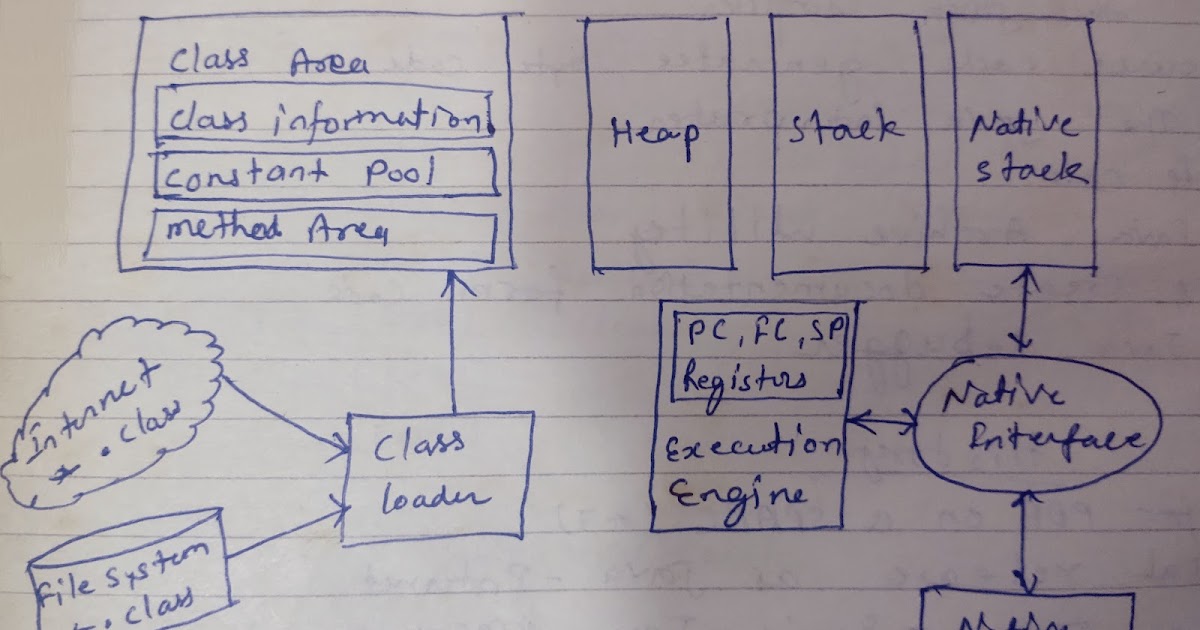 Class Area
class information
constant Pool
method Area
Heap
Stack
Native
stack
PC, FC, SP
Registors
Execution
Engine
Native
Interface
Internet
*.class
Class
loader
File System
*.class